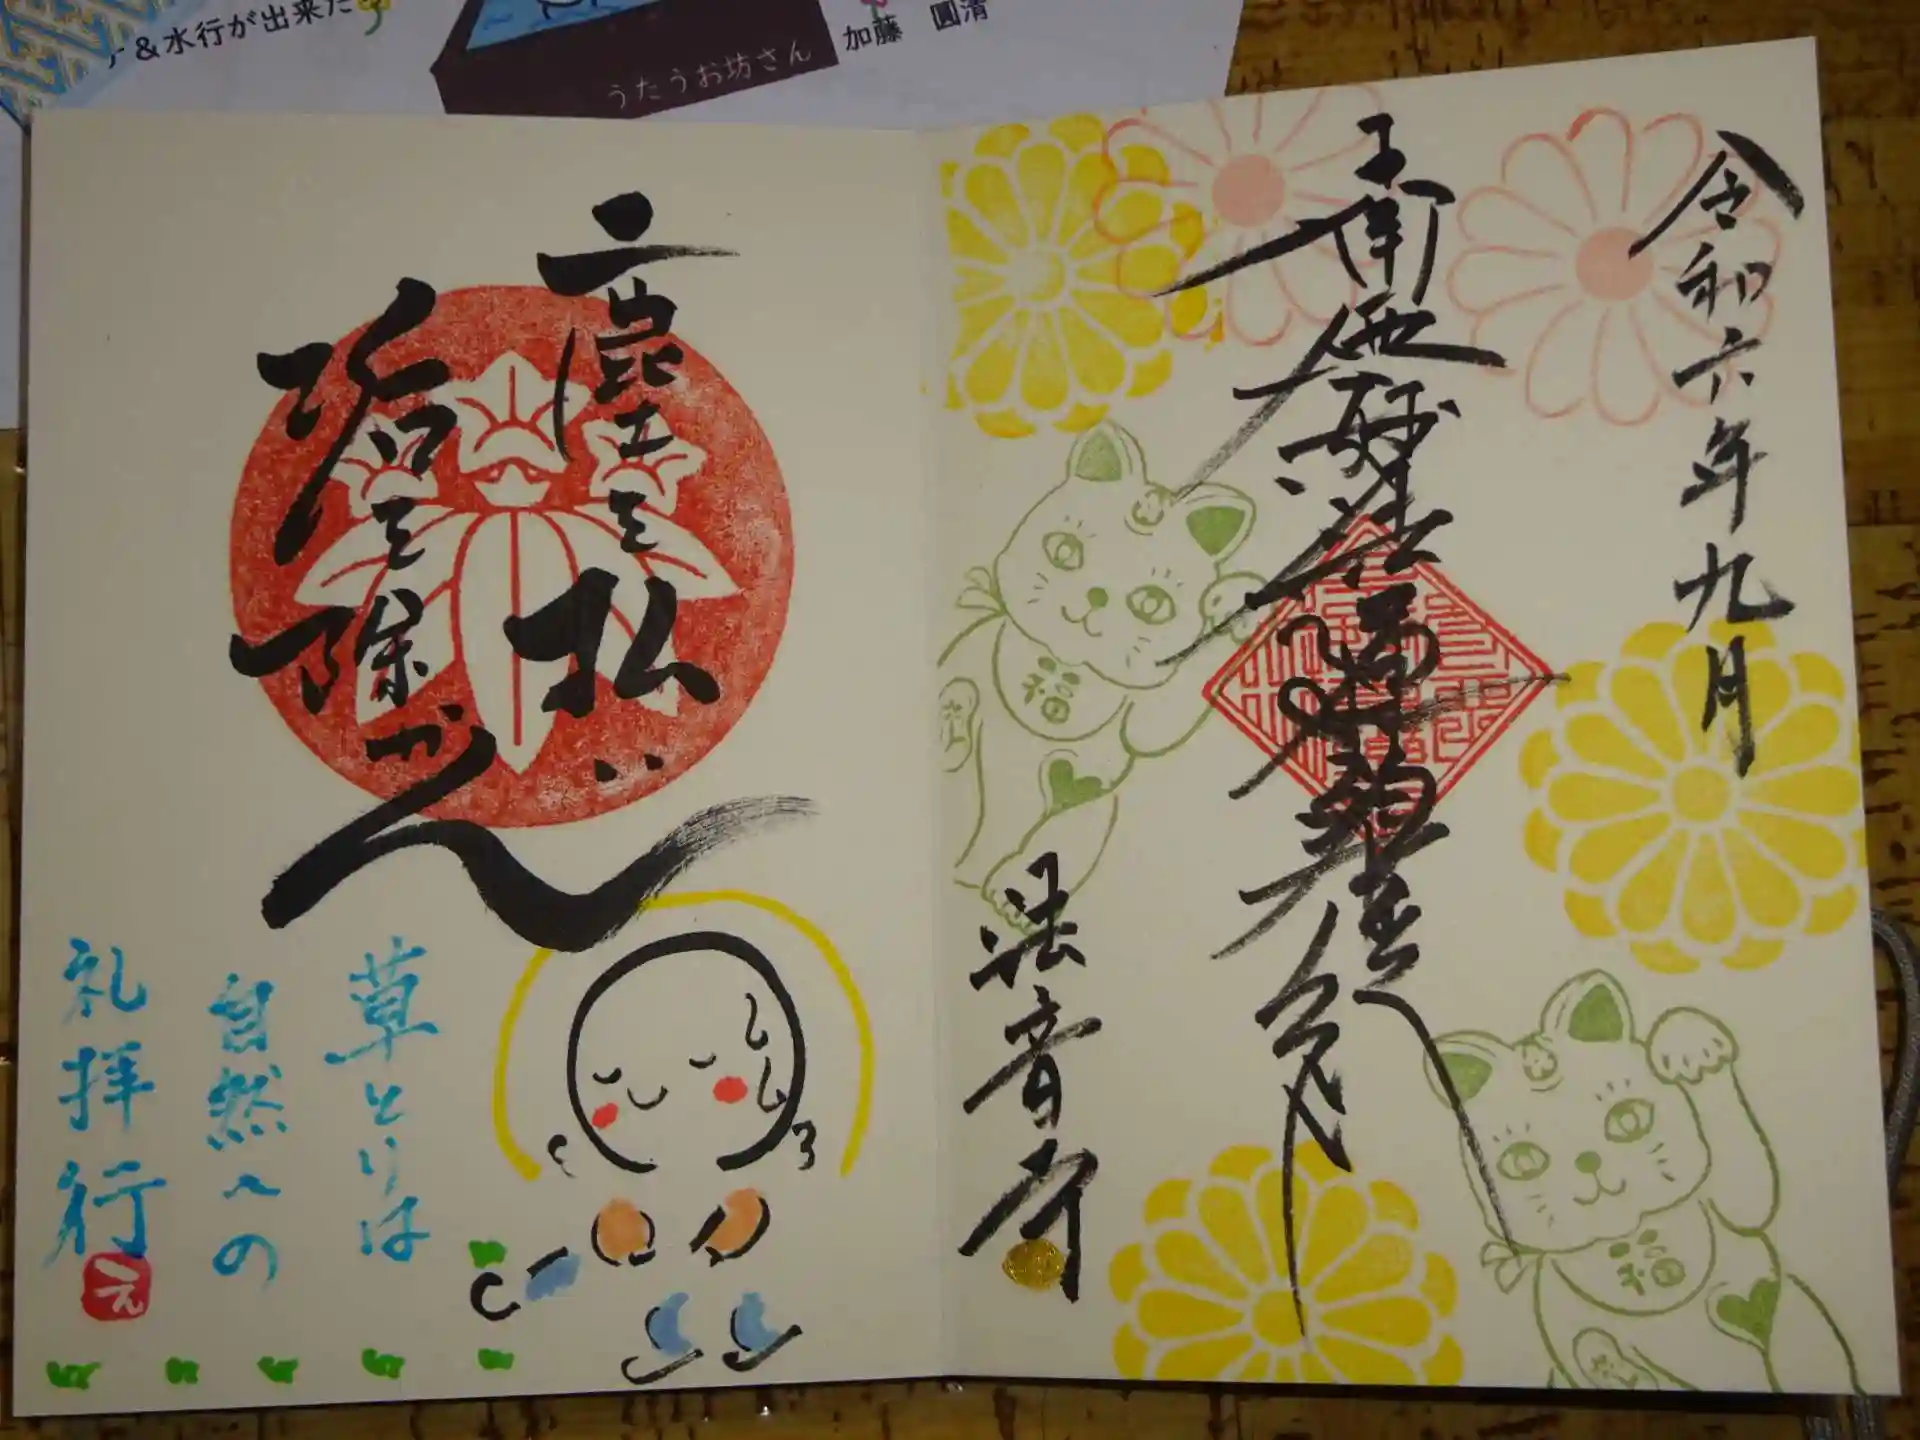 &水行が出来た
うたうお坊さん
加藤 圓清
令和六年九月
南無妙法蓮華経
法音寺
塵を払い
垢を除かん
草とりは
自然への
礼拝行
え
福
福